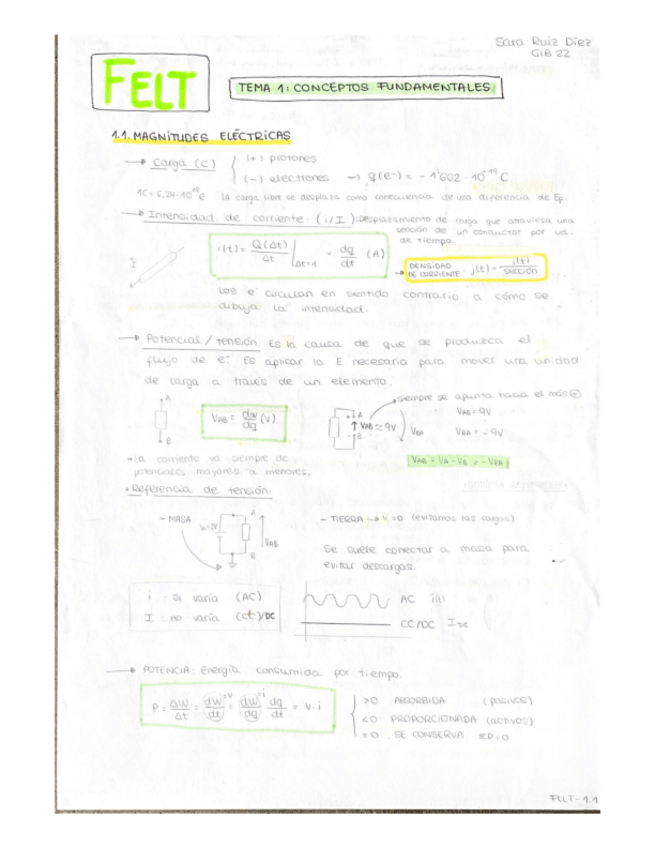 Sara Ruiz Díez
GIB 22
FELT
TEMA 1: CONCEPTOS FUNDAMENTALES
1.1. MAGNITUDES ELÉCTRICAS
→ Carga (C) { (+) protones
(-) electrones → q(e⁻) = -1'602 · 10⁻¹⁹ C
1C = 6.24·10¹⁸ e⁻ la carga libre se desplaza como consecuencia de una diferencia de Ep.
→ Intensidad de corriente: (i/I): Desplazamiento de carga que atraviesa una
sección de un conductor por ud.
de tiempo.
I
i(t) = Q(Δt)/Δt |Δt=1 = dq/dt (A)
DENSIDAD DE CORRIENTE: j(t) = i(t)/sección
Los e⁻ circulan en sentido contrario a cómo se
dibuja la intensidad.
→ Potencial / tensión: Es la causa de que se produzca el
flujo de e⁻. Es aplicar la E necesaria para mover una unidad
de carga a través de un elemento.
siempre se apunta hacia el más ⊕
A
B
VAB = dw/dq (V)
A
B
↑ VAB ≈ 9V
VBA
VAB = 9V
VBA = -9V
VAB = VA - VB = -VBA
→ La corriente va siempre de
potenciales mayores a menores.
• Referencia de tensión:
- MASA
A
B
VAB
- TIERRA → V=0 (evitamos las cargas)
Se suele conectar a masa para
evitar descargas.
i : si varía (AC)
I : no varía (ct)/DC
AC i(t)
CC/DC IDC
→ POTENCIA: Energía consumida por tiempo.
P = ΔW/Δt = dW/dt = dW/dq · dq/dt = V·i
=V
i
>0 ABSORBIDA (pasivos)
<0 PROPORCIONADA (activos)
=0 SE CONSERVA ΣP=0
FELT-1.1